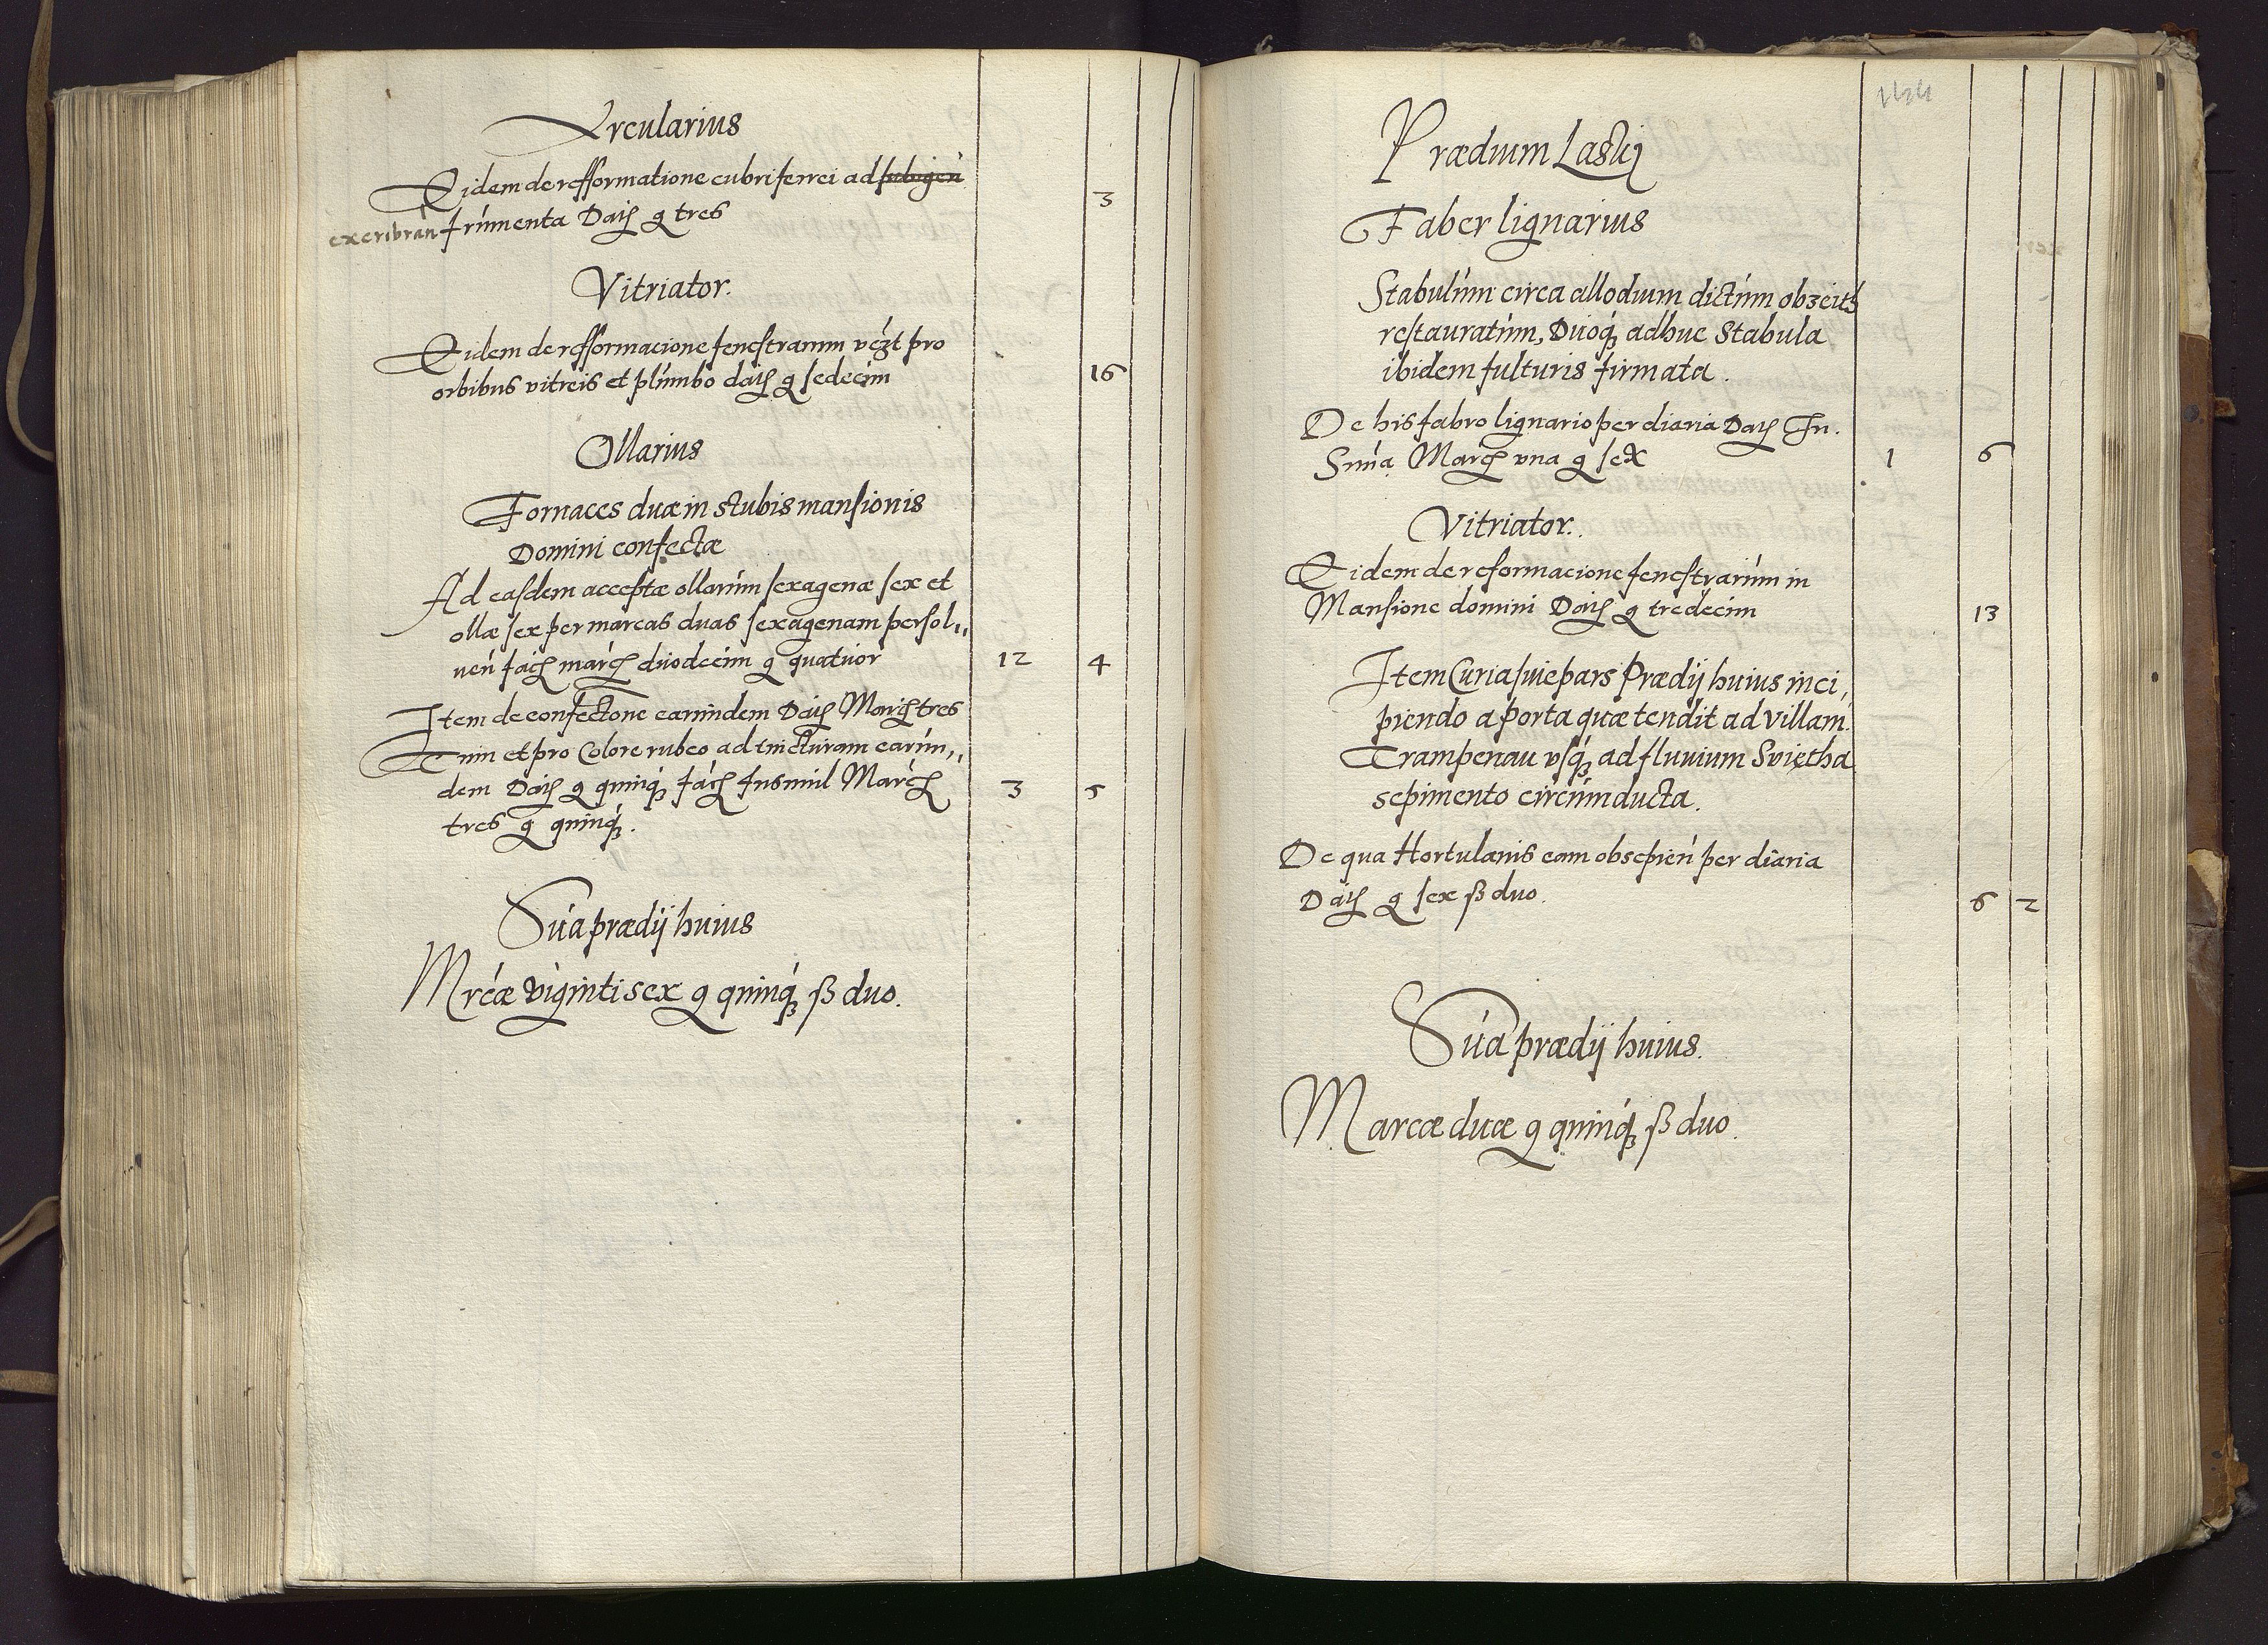 Arcularius
Eidem de refformatione cubri ferrei ad subigen
excribran frumenta Datȝ g tres
3
Vitriator.
Eidem de refformacione fenestrarum vczt pro
orbibus vitreis et plumbo datȝ g sedecim
16
Ollarius
Fornaces duæ in stubis mansionis
Domini confectæ
Ad easdem acceptæ ollarum sexagenæ sex et
ollæ sex per marcas duas sexagenam persol„
ven facȝ marcȝ duodecim g quatuor
12 4
Item de confectone earundem Datȝ Marcȝ tres
Tum et pro Colore rubeo ad tincturam earun„
dem Datȝ g quinqȝ facȝ Insimul Marcȝ
3 5
tres g quinqȝ.
Sua prædij huius
Mrcæ viginti sex g quinqȝ ß duo.
144
Prædium Laskj
Faber lignarius
Stabulum circa allodium dictum
restauratum, Duoqȝ adhuc Stabula
ibidem fulturis firmata.
De his fabro lignario per diaria Datȝ In.
Suma Marcȝ vna g sex
1 6
Vitriator.
Eidem de reformacione fenestrarum in
Mansione domini Datȝ g tredecim
13
Item Curia siue pars Prædij huius inci,
piendo a porta quæ tendit ad villam.
Trampenau vsqȝ ad fluuium Swiętha
sepimento circumducta.
De qua Hortulanis eam obsepien per diaria
Datȝ g sex ß duo.
6 2
Sua prædij huius.
Marcæ duæ g quinqȝ ß duo.